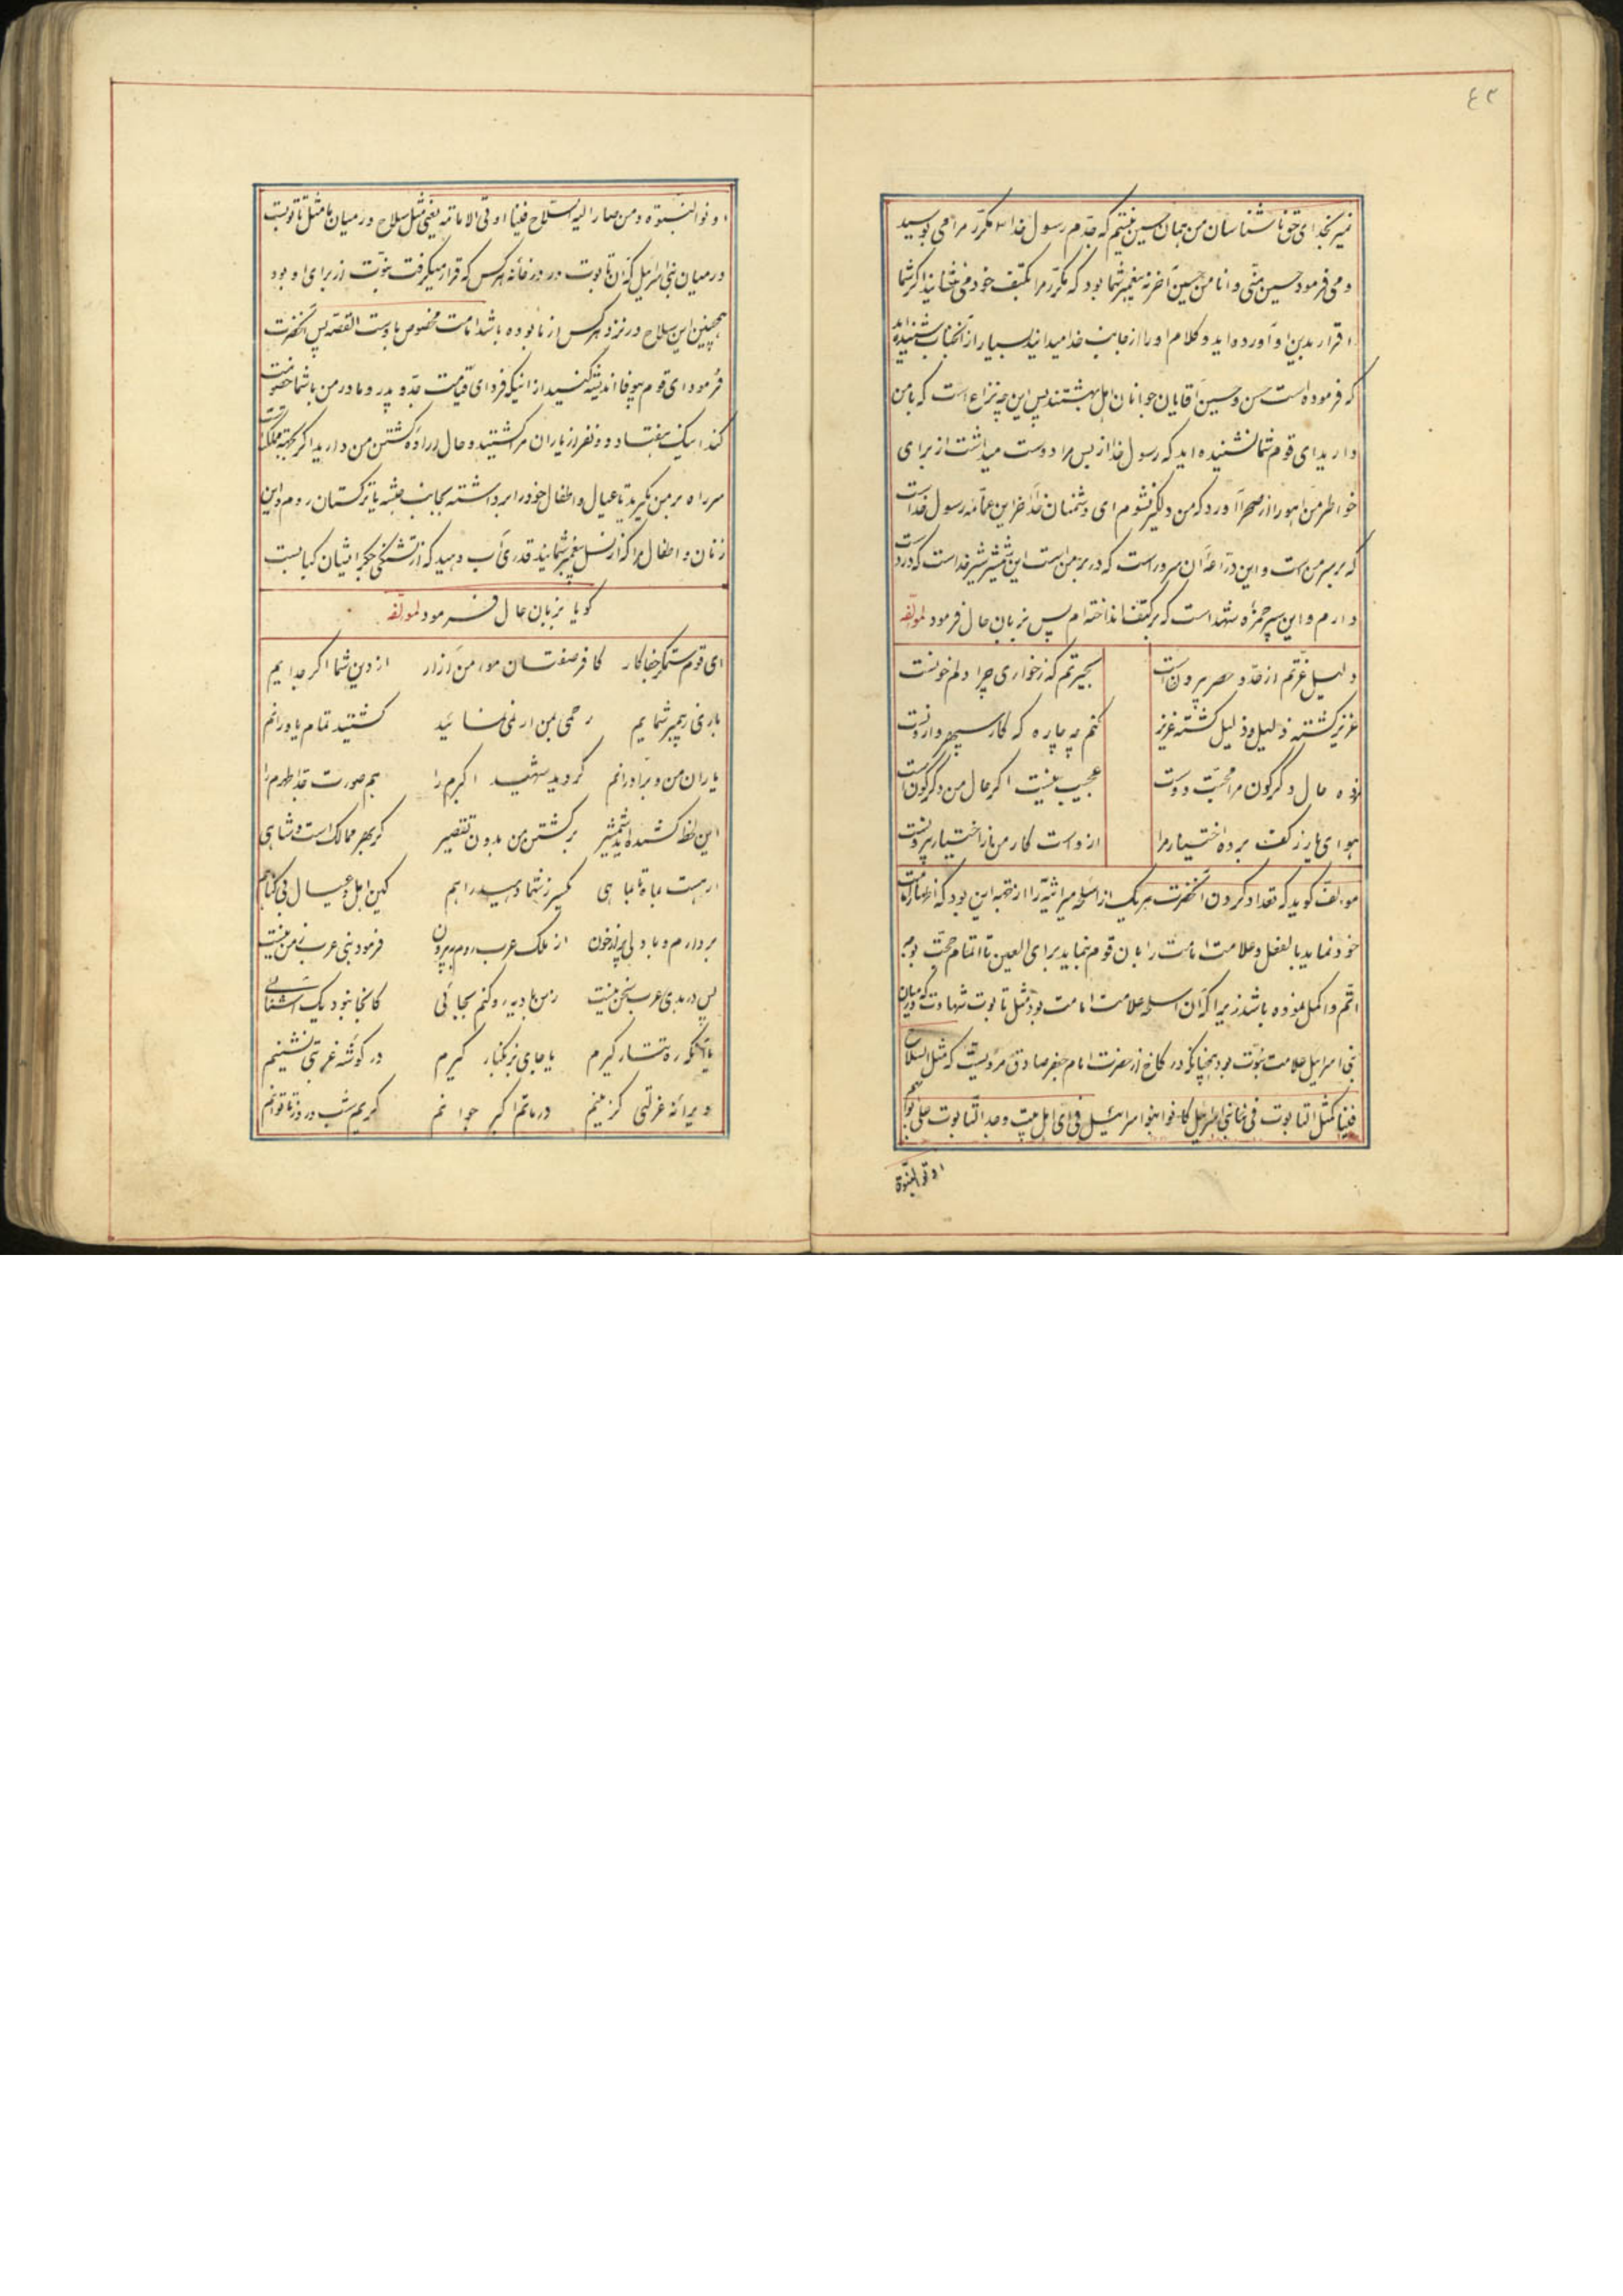 ٤٢
نمیر بخدای حق ناشناسان من همان حسین نیستم که جدم رسول خدا مکرر مرا می بوسید
و می فرمود حسین منی و انا من حسین آخر نه پیغمبر شما بود که مکرر مرا بکتف خود می نشانید اگر شما
اقرار بدین او آورده اید و کلام او را از جانب خدا میدانید بسیار از آنجناب شنیده اید
که فرموده است حسن و حسین آقایان جوانان اهل بهشتند پس این چه نزاع است که با من
دارید ای قوم شما نشنیده اید که رسول خدا از بس مرا دوست میداشت از برای
خواطر من آهو را از صحرا آورد که من دلگیر نشوم ای دشمنان خدا آخر این عمامه رسول خداست
که بر سر من است و این دراعه آن سرور است که در بر من است این شمشیر شیر خداست که در دست
دارم و این سپر حمزه سیدشهداست که بر کتف انداخته ام پس بزبان حال فرمود لمؤلفه
دلیل عزتم از حد و حصر بیرون است بحیرتم که ز خواری چرا دلم خونست
عزیز گشته ذلیل و ذلیل گشته عزیز کنم چه چاره که کار سپهر وارونست
نموده حال دگرگون مرا محبت دوست عجیب نیست اگر حال من دگرگون است
هوای یار ز کف برده اختیار مرا از دست کار من از اختیار بیرونست
مؤلف گوید که تعداد کردن آنحضرت هر یک از اسلحه میراثیه را از جهة این بود که اظهار امامت
خود نماید بالفعل و علامت امامت را بآن قوم نماید برای العین تا اتمام حجت بوجه
اتم و اکمل نموده باشد زیرا که آن اسلحه علامت امامت بود مثل تابوت شهادت که در میان
بنی اسرائیل علامت نبوت بود چنانکه در کافی از حضرت امام جعفر صادق مرویست که مثل السلاح
فینا کمثل التابوت فی بنی اسرائیل کانوا بنوا اسرائیل فی ای اهل بیت وجد التابوت علی بابهم
اوتوا النبوة
اوتوا النبوة و من صار الیه السلاح فینا اوتی الامامة یعنی مثل سلاح در میان ما مثل تابوتیست
در میان بنی اسرائیل که آن تابوت در در خانه هر کس که قرار میگرفت نبوت از برای او بود
همچنین این سلاح در نزد هر کس از ما بوده باشد امامت مخصوص باوست القصه پس آنحضرت
فرمود ای قوم بیوفا اندیشه کنید از اینکه فردای قیامت جد و پدر و مادر من با شما خصومت
کند اینک هفتاد و دو نفر از یاران مرا کشتید و حال اراده کشتن من دارید اگر بجهة ملک است
سر راه بر من نگیرید تا عیال و اطفال خود را برداشته بجانب حبشه یا ترکستان روم و این
زنان و اطفال مرا که از نسل پیغمبر شمایند قدری آب دهید که از تشنگی جگر ایشان کبابست
گویا بزبان حال فرمود لمؤلفه
ای قوم ستمگر جفاکار کافر صفتان مردم آزار از دین شما اگر جدایم
باری نه پیمبر شمایم رحمی بمن ار نمی نمائید کشتید تمام یاورانم
یاران من و برادرانم کردید شهید اکبرم را هم صورت جد اطهرم را
این لحظه کشیده اید شمشیر بر کشتن من بدون تقصیر گر بهر ممالک است و شاهی
ار هست عباه تباهی گیرید ز شما دهید راهم کاین اهل و عیال بی گناهم
بردارم و با دلی پر از خون از ملک عرب روم به بیرون فرمود بنی عرب ز من نیست
پس در بدی عرب سخن نیست زمن بادیه رو کنم بجائی کانجا نبود یک آشنائی
یا آنکه ره تتار گیرم یا جای بزنگبار گیرم در گوشه غربتی نشینم
ویرانه عزلتی گزینم در ماتم اکبر جوانم گریم شب و روز تا توانم